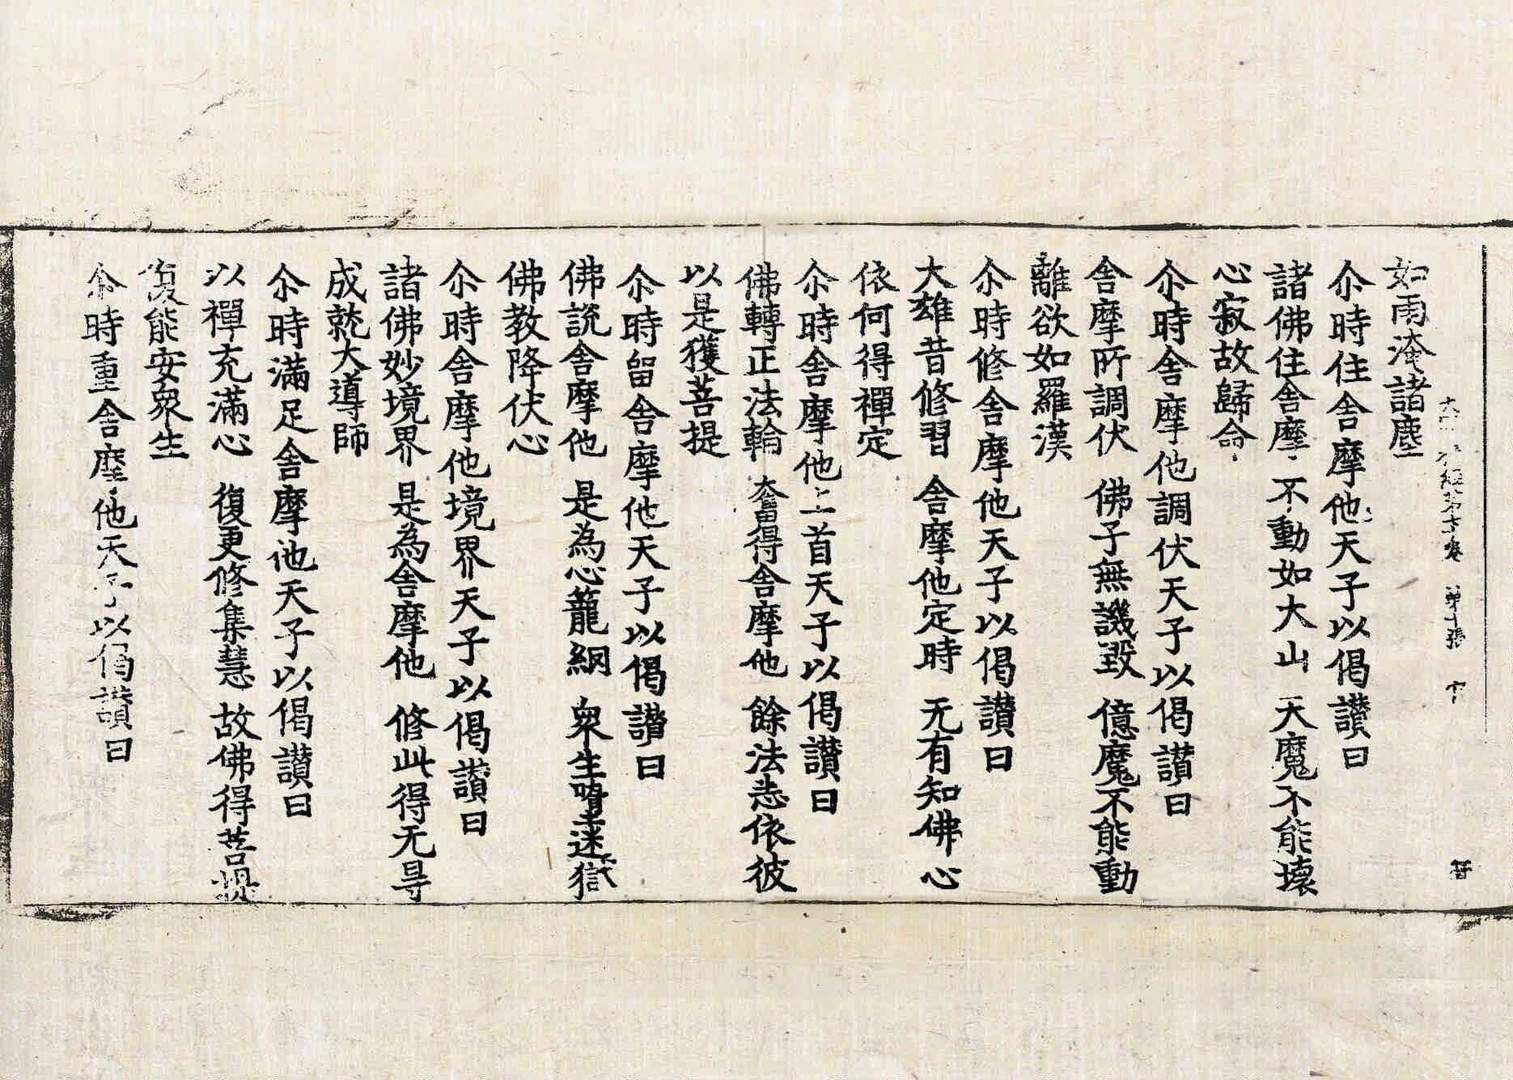 如雨淹諸塵
尒時住舎摩他天子以偈讃曰
諸佛住舎摩 不動如大山 天魔不能壊
心寂故歸命
尒時舎摩他調伏天子以偈讃曰
舎摩所調伏 佛子無譏毀 億魔不能動
離欲如羅漢
尒時修舎摩他天子以偈讃曰
大雄昔修習 舎摩他定時 无有知佛心
依何得禪定
尒時舎摩他上首天子以偈讃曰
佛轉正法輪 得舎摩他 餘法悉依彼
以是獲菩提
尒時留舎摩他天子以偈讃曰
佛説舎摩他 是為心籠網 衆生迷獄
佛教降伏心
尒時舎摩他境界天子以偈讃曰
諸佛妙境界 是為舎摩他 修此得无㝵
成就大導師
尒時滿足舎摩他天子以偈讃曰
以禪充滿心 復更修集慧 故佛得菩提
復能安衆生
尒時重舎摩他天子以偈讃曰